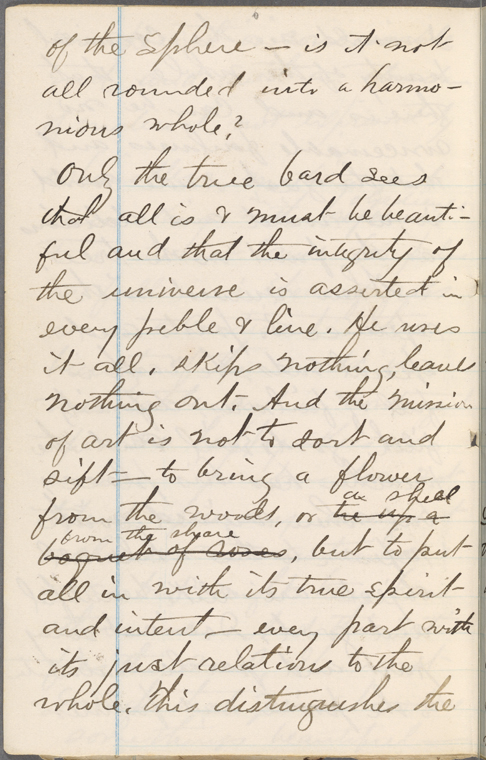 of the Sphere — is it not
all rounded into a harmo-
nious whole?
Only the true bard sees
that all is & must be beauti-
ful and that the integrity of
the universe is asserted in
every peble & line. He uses
it all, skips nothing, leaves
nothing out. And the mission
of art is not to sort and
sift — to bring a flower
a shell
from the woods, or tie up a
from the shore
boquet of roses, but to put
all in with its true spirit
and intent — every part with
its just relations to the
whole. This distinguishes the